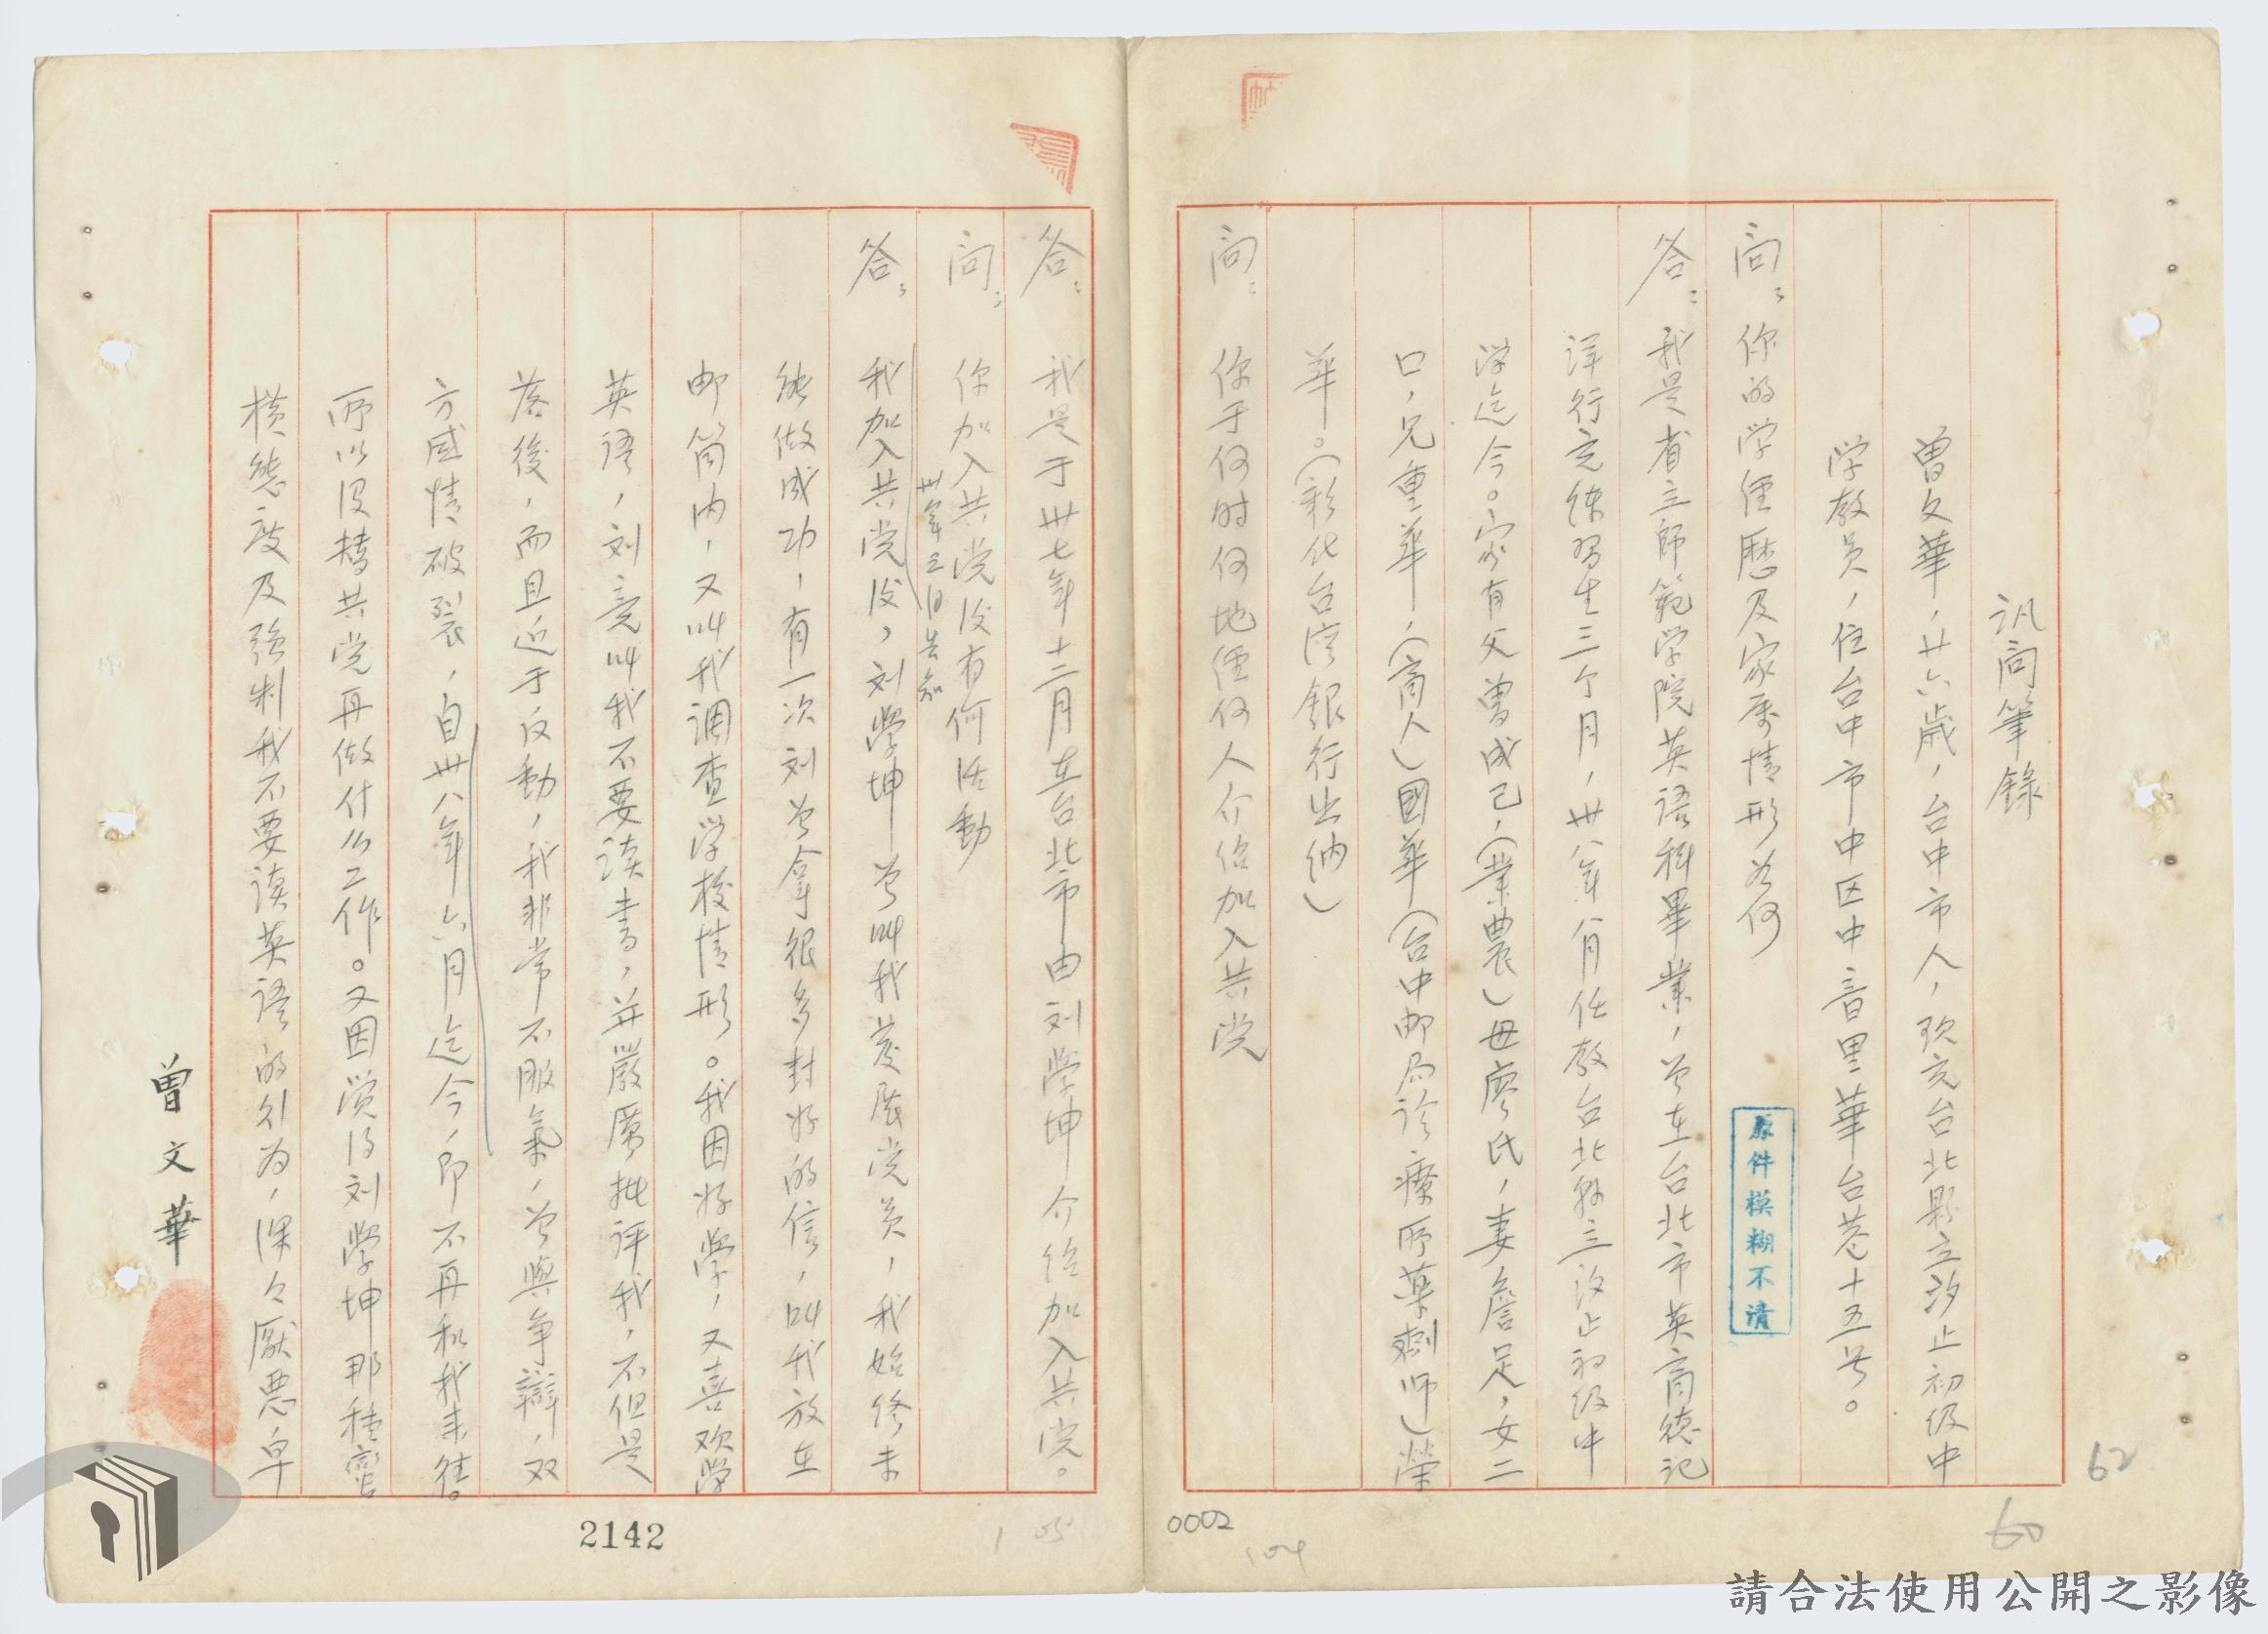 訊问筆錄
曾文華，廿六歲，台中市人，现充台北县立汐止初级中
学教员，住台中市中区中音里華台巷十五号。
问：你的学经歷及家属情形为何
答：我是省立師範学院英语科畢業，曾在台北市英商德记
洋行充练習生三个月，卅八年八月任教台北縣三汐止初级中
学迄今。家有父曾成己，（業農）母廖氏，妻詹足，女二
口，兄重華，（商人）國華（台中邮局诊療所藥劑师）榮
華。（彰化台湾銀行出纳）
问：你于何时何地经何人介绍加入共党
答：我是于卅七年十二月在台北市由刘学坤介绍加入共党。
问：你加入共党后有何活動
答：我加入共党后，刘學坤曾叫我发展党员，我始终未
能做成功，有一次刘曾拿很多封好的信，叫我放在
邮筒内，又叫我调查学校情形。我因好學，又喜欢学
英语，刘竟叫我不要读书，并嚴厲批评我，不但是
落後，而且近于反動，我非常不服氣，曾與争辯，双
方感情破裂，自卅八年六月迄今，即不再和我来往。
所以没替共党再做什么工作。又因觉得刘學坤那种蛮
横態度及強制我不要读英语的行为，深々厭恶，早
曾文華
原件模糊不清
62
60
0002
104
105
2142
請合法使用公開之影像